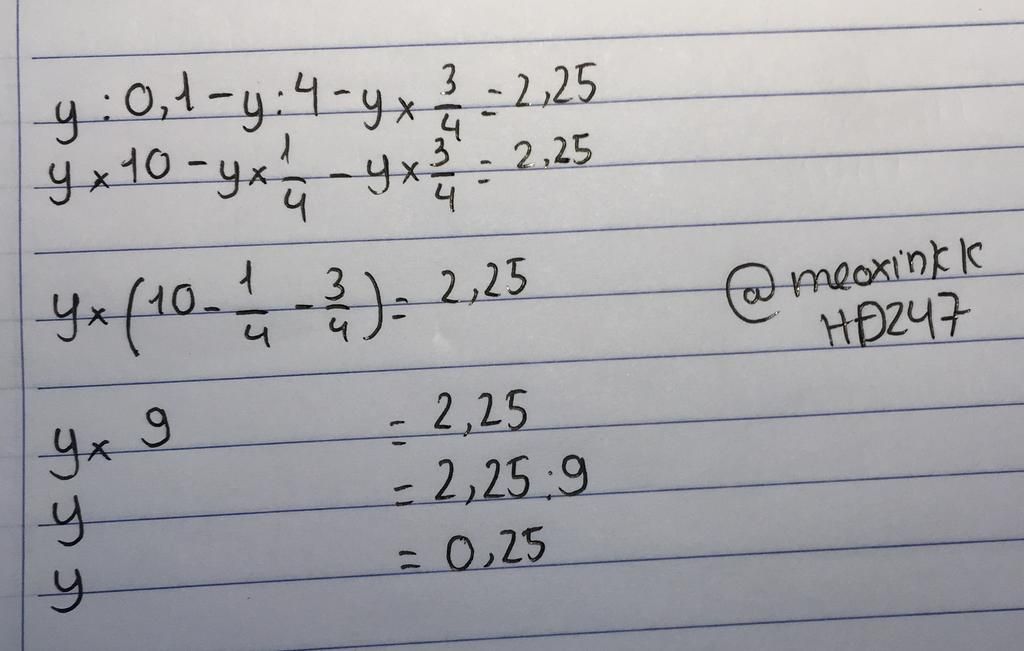 y : 0,1 - y : 4 - y × 3/4 = 2,25
y × 10 - y × 1/4 - y × 3/4 = 2,25
y × (10 - 1/4 - 3/4) = 2,25
@meoxinkk
HĐ247
y × 9 = 2,25
y = 2,25 : 9
y = 0,25